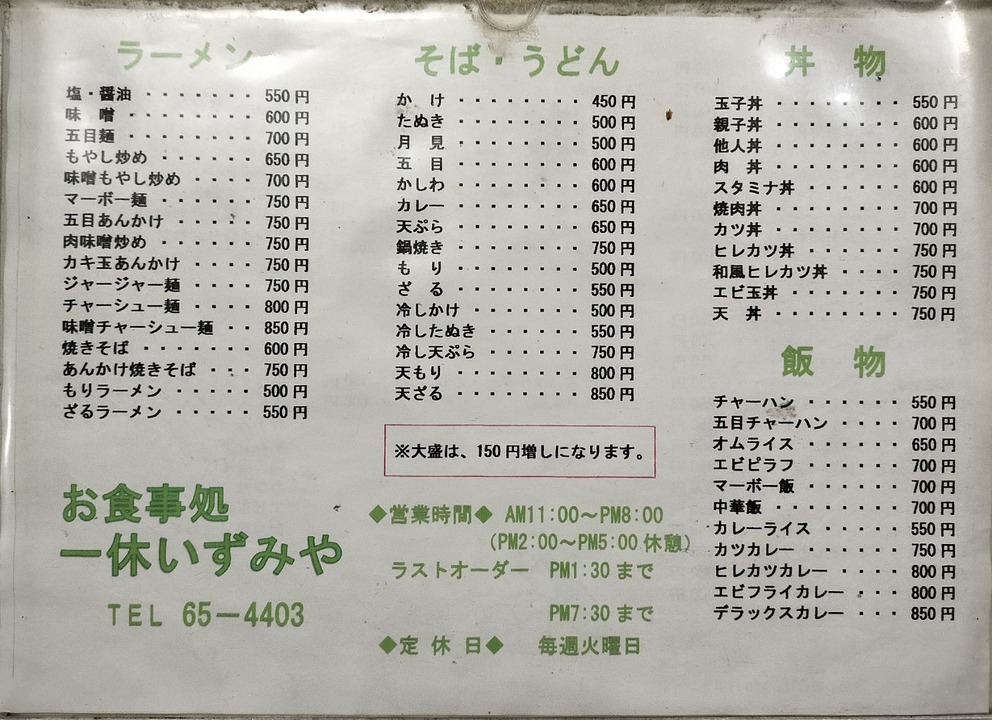 ラーメン
塩・醤油 ・・・・・・・ 550円
味　噌 ・・・・・・・ 600円
五目麺 ・・・・・・・ 700円
もやし炒め ・・・・・・ 650円
味噌もやし炒め ・・・・ 700円
マーボー麺 ・・・・・・ 750円
五目あんかけ ・・・・・ 750円
肉味噌炒め ・・・・・・ 750円
カキ玉あんかけ ・・・・ 750円
ジャージャー麺 ・・・・ 750円
チャーシュー麺 ・・・・ 800円
味噌チャーシュー麺 ・・ 850円
焼きそば ・・・・・・・ 600円
あんかけ焼きそば ・・・ 750円
もりラーメン ・・・・・ 500円
ざるラーメン ・・・・・ 550円
お食事処
一休いずみや
TEL 65－4403
そば・うどん
か　け ・・・・・・・・ 450円
たぬき ・・・・・・・・ 500円
月　見 ・・・・・・・・ 500円
五　目 ・・・・・・・・ 600円
かしわ ・・・・・・・・ 600円
カレー ・・・・・・・・ 650円
天ぷら ・・・・・・・・ 650円
鍋焼き ・・・・・・・・ 750円
も　り ・・・・・・・・ 500円
ざ　る ・・・・・・・・ 550円
冷しかけ ・・・・・・・ 500円
冷したぬき ・・・・・・ 550円
冷し天ぷら ・・・・・・ 750円
天もり ・・・・・・・・ 800円
天ざる ・・・・・・・・ 850円
※大盛は、150円増しになります。
◆営業時間◆ AM11:00～PM8:00
（PM2:00～PM5:00休憩）
ラストオーダー　PM1:30まで
PM7:30まで
◆定 休 日◆　毎週火曜日
丼　物
玉子丼 ・・・・・・・ 550円
親子丼 ・・・・・・・ 600円
他人丼 ・・・・・・・ 600円
肉　丼 ・・・・・・・ 600円
スタミナ丼 ・・・・・ 600円
焼肉丼 ・・・・・・・ 700円
カツ丼 ・・・・・・・ 700円
ヒレカツ丼 ・・・・・ 750円
和風ヒレカツ丼 ・・・・ 750円
エビ玉丼 ・・・・・・ 750円
天　丼 ・・・・・・・ 750円
飯　物
チャーハン ・・・・・ 550円
五目チャーハン ・・・・ 700円
オムライス ・・・・・ 650円
エビピラフ ・・・・・ 700円
マーボー飯 ・・・・・ 700円
中華飯 ・・・・・・・ 700円
カレーライス ・・・・・ 550円
カツカレー ・・・・・ 750円
ヒレカツカレー ・・・・ 800円
エビフライカレー ・・・ 800円
デラックスカレー ・・・ 850円